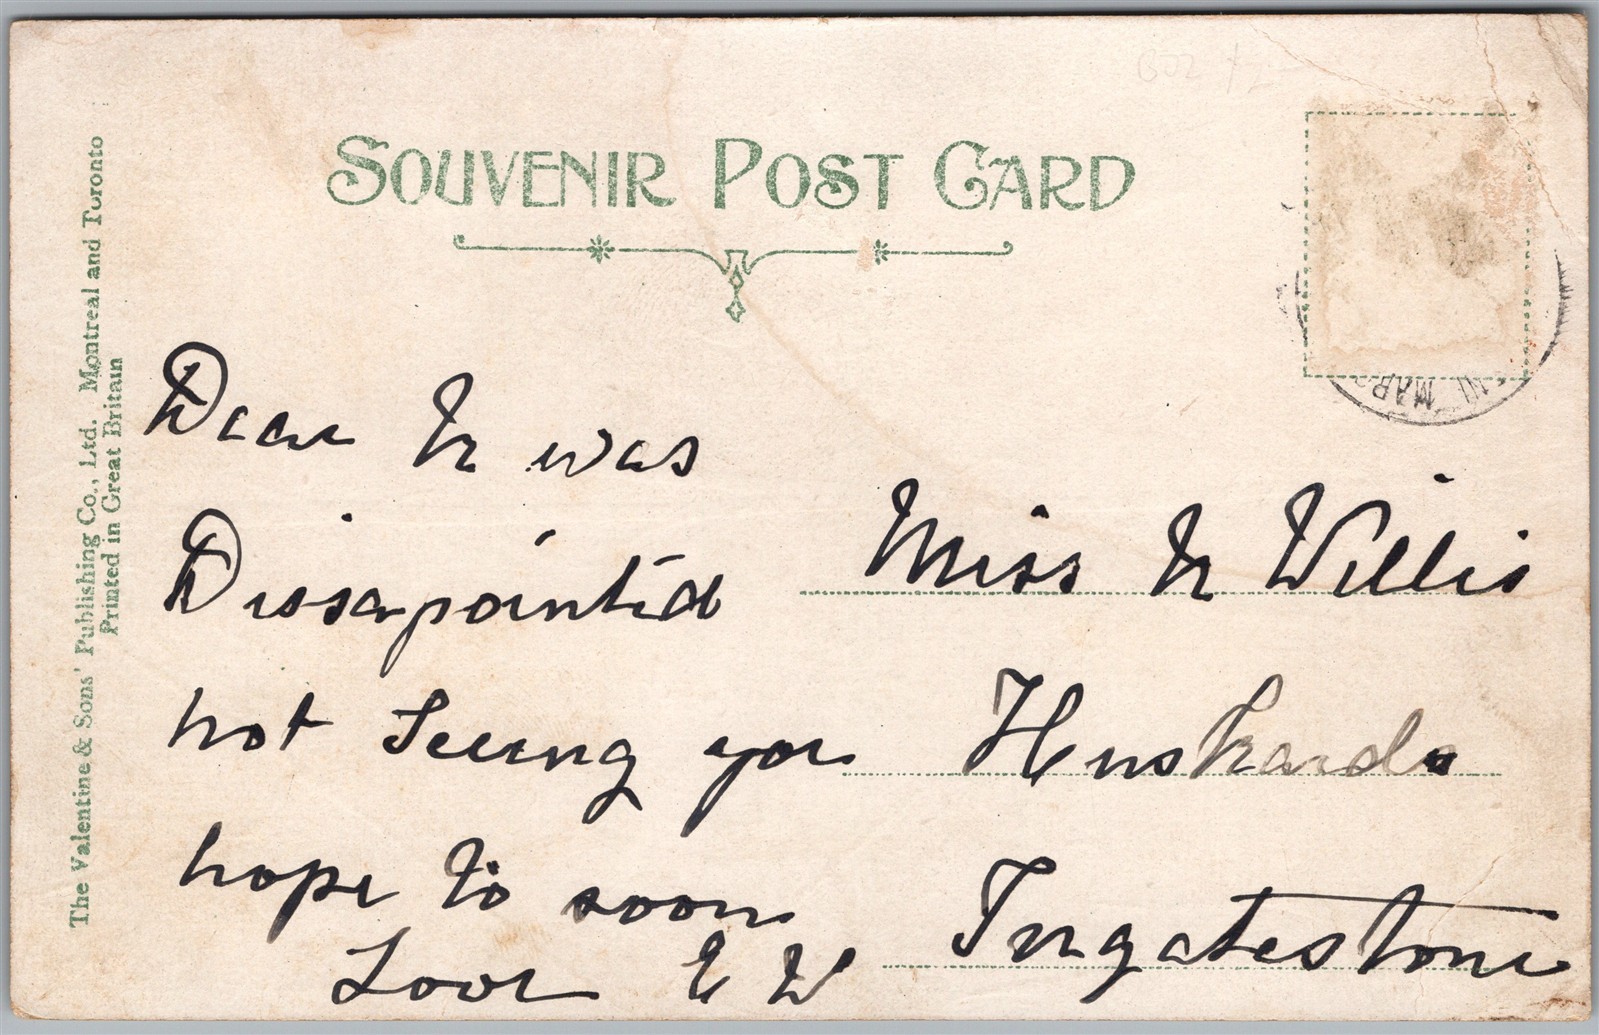 SOUVENIR POST CARD
The Valentine & Sons' Publishing Co., Ltd. Montreal and Toronto
Printed in Great Britain
Dear N was
Dissapointed
not Seeing you
hope to soon
Love E W
Miss N Willis
Huskards
Ingatestone
MAR